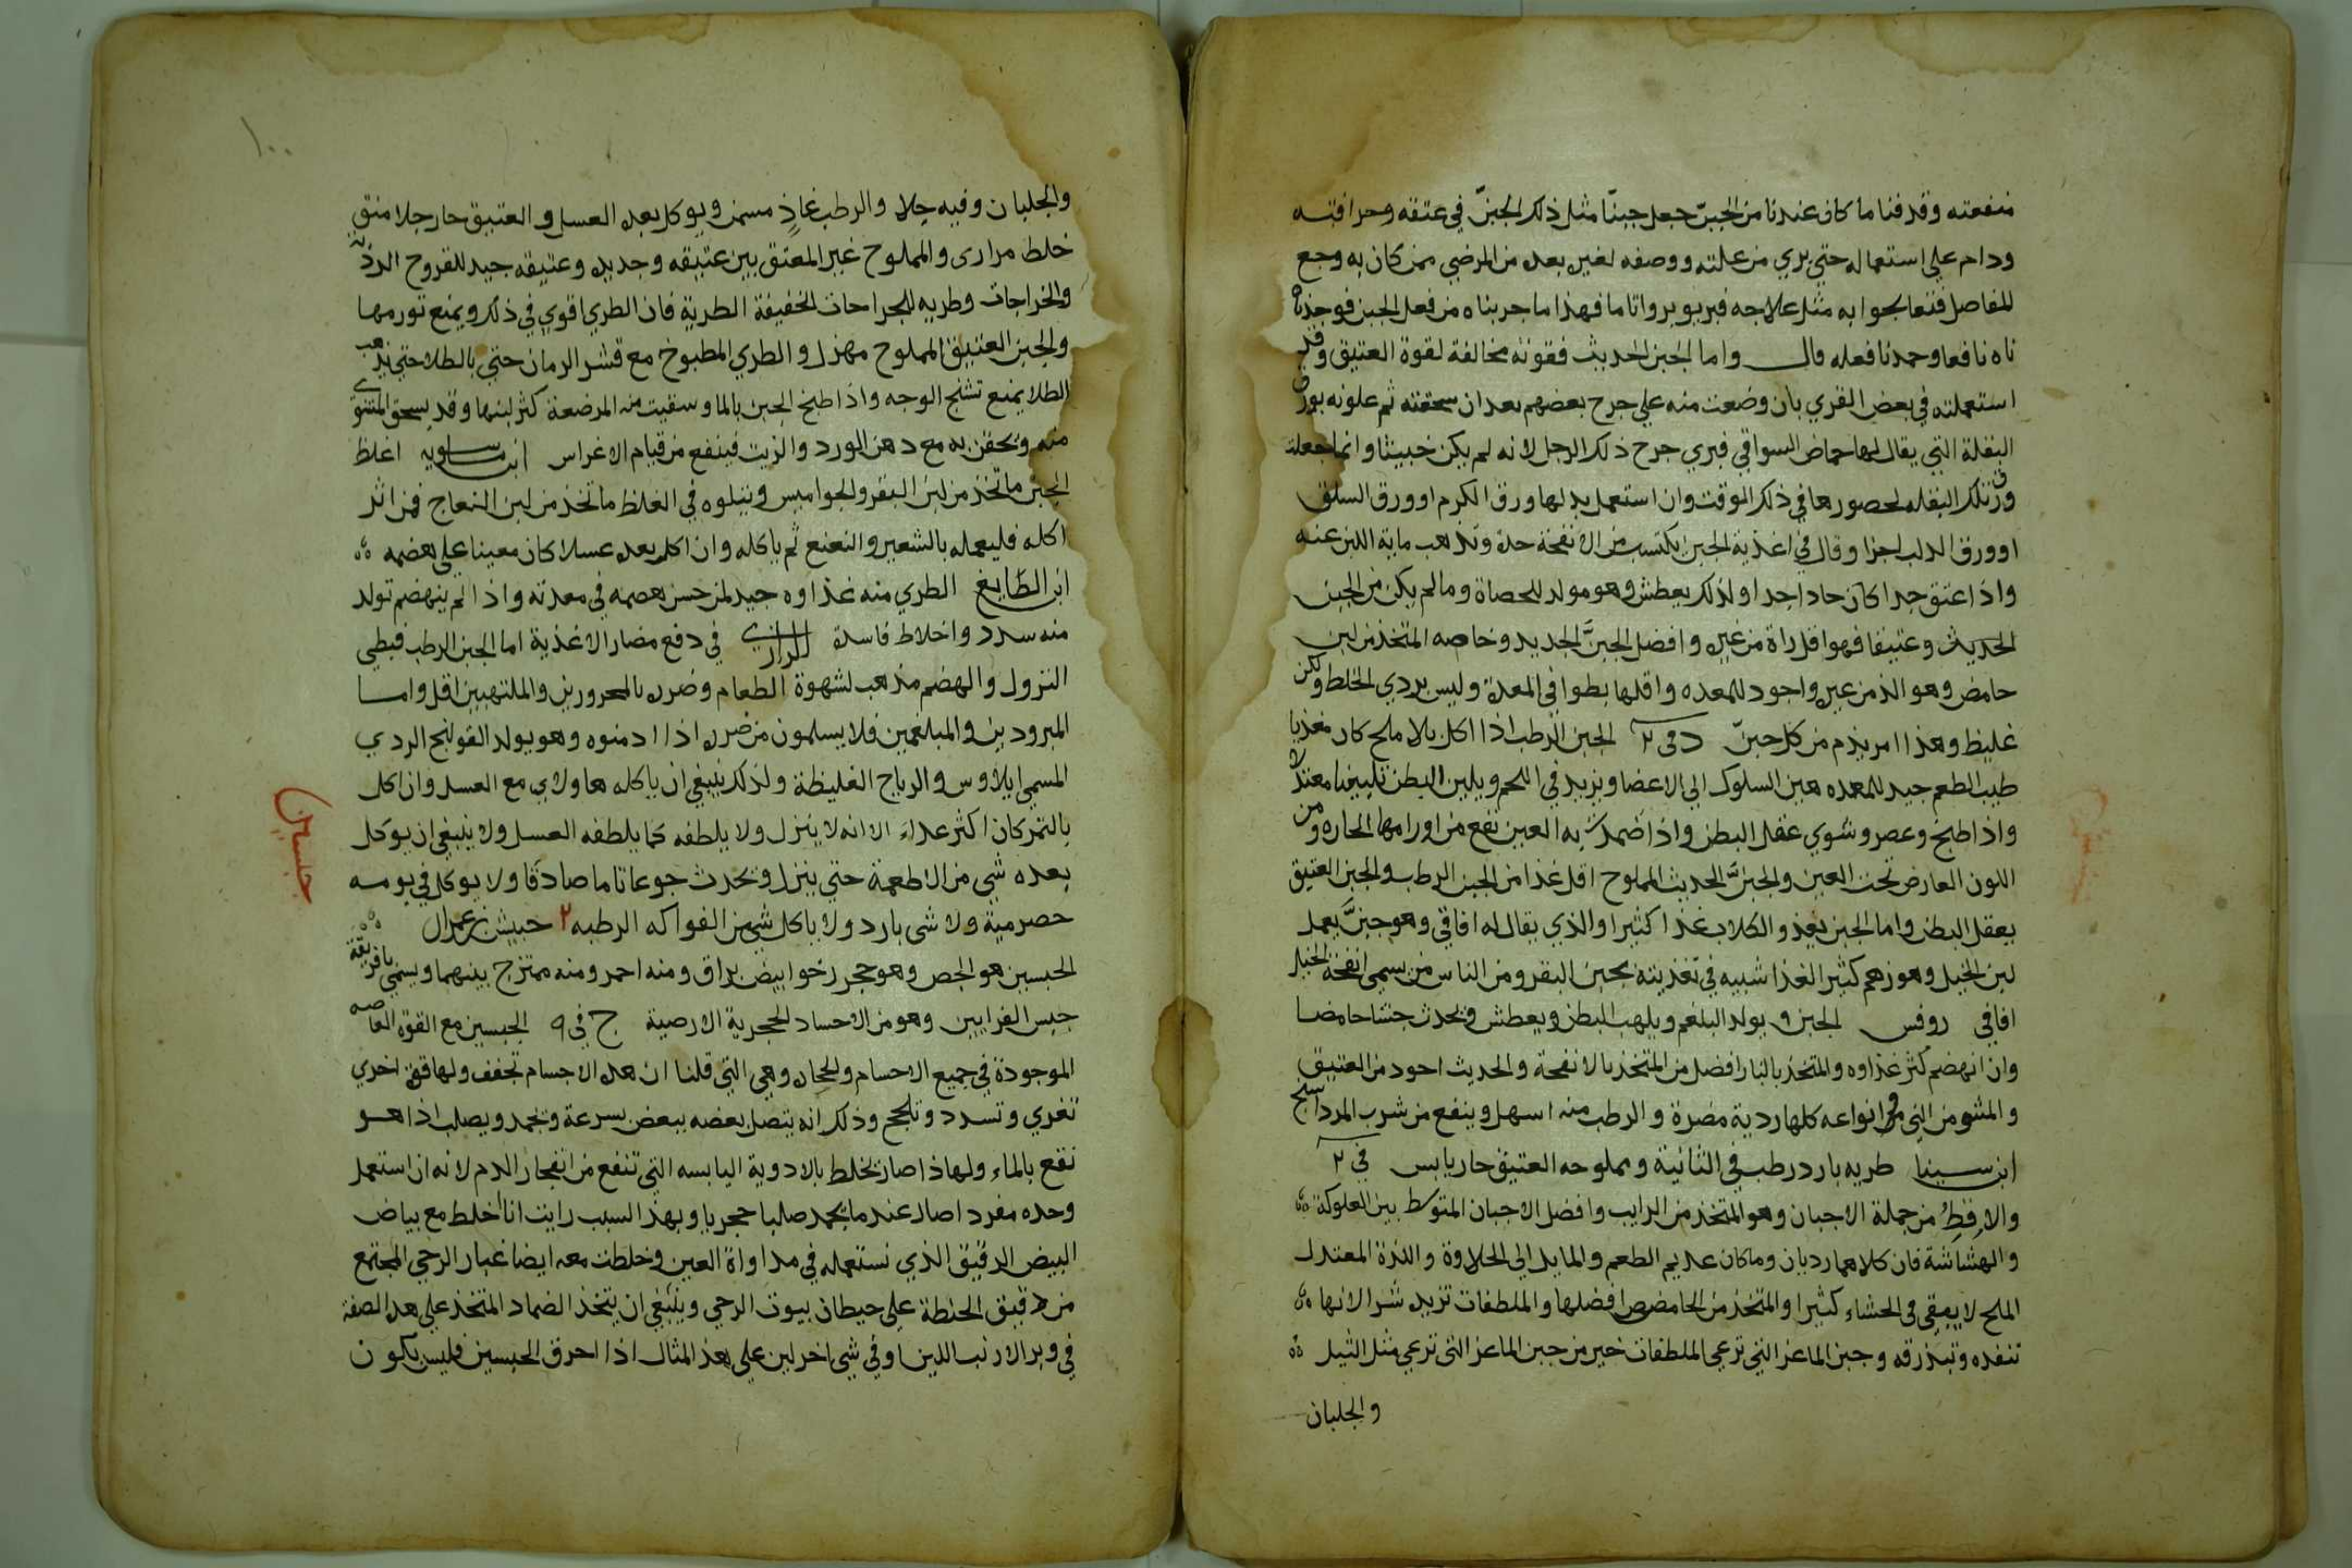 منفعته وقد فنا ما كان عندنا من الجبن جعل جبنا مثل ذلك الجبن في عتقه وحرافته
ودام علي استعماله حتي بري من علته ووصفه لغيره بعد من المرضي ممن كان به وجع
المفاصل فتعالجوا به مثل علاجه فبريو برواتا ما فهذا ما جربناه من فعل الجبن فوجد
ناه نافعا وحمدنا فعله قال واما الجبن الحديث فقوته مخالفة لقوة العتيق وقد
استعملته في بعض القري بان وضعت منه علي جرح بعضهم بعد ان سحقته ثم علوته بورق
البقلة التي يقال لها حماض السواقي فبري جرح ذلك الرجل لانه لم يكن خبيثا وانما جعلت
ورق تلك البقله لحضورها في ذلك الوقت وان استعمل بدلها ورق الكرم او ورق السلق
او ورق الدلب اجزا وقال في اغذية الجبن يكتسب من الانفحة حدة وتذهب مائة اللبن عنه
واذا عتق جدا كان حادا جدا ولذلك يعطش وهو مولد للحصاة وما لم يكن من الجبن
الحديث وعتيقا فهو اقل راة من غيره وافضل الجبن الجديد وخاصه المتخذ من لبن
حامض وهو الذ من غيره واجود للمعده واقلها بطوا في المعدة وليس بردي الخلط ولكن
غليظ وهذا امر يذم من كل جبن د في ٢ الجبن الرطب اذا اكل بلا ملح كان مغذيا
طيب الطعم جيد للمعده هين السلوك الي الاعضا ويزيد في اللحم ويلين البطن تليينا معتدلا
واذا طبخ وعصر وشوي عقل البطن واذا ضمدت به العين نفع من اورامها الحاره ومن
اللون العارض تحت العين والجبن الحديث المملوح اقل غذا من الجبن الرطب والجبن العتيق
يعقل البطن واما الجبن يغذو الكلاب غذا كثيرا والذي يقال له افاقي وهو جبن يعمل
لبن الخيل وهو زهم كثير الغذا شبيه في تغذيته بجبن البقر ومن الناس من يسمي انفحة الخيل
افاقي روفس الجبن ويولد البلغم ويلهب البطن ويعطش ويحدث جشا حامضا
وان انهضم كثر غذاوه والمتخذ بالنار افضل من المتخذ بالانفحة والحديث اجود من العتيق
والمشو من الني وفي انواعه كلها ردية مضرة والرطب منه اسهل وينفع من شرب المرداسنج
ابن سينا طريه بارد رطب في الثانية ومملوحه العتيق حار يابس في ٢
والاقط من جملة الاجبان وهو المتخذ من الرايب وافضل الاجبان المتوسط بين العلوكة
والهشاشة فان كلاهما رديان وما كان عديم الطعم والمايل الي الحلاوة واللذة المعتدل
الملح لا يبقي في الحشاء كثيرا والمتخذ من الحامض افضلها والملطفات تزيد شرا لانها
تنفده وتبذرقه وجبن الماعز التي ترعي الملطفات خير من جبن الماعز التي ترعي مثل الثيل
والجلبان
١٠٠
والجلبان وفيه جلا والرطب غاذ مسمن ويوكل بعد العسل والعتيق حار جلا منق
خلط مراري والمملوح غير المعتق بين عتيقه وجديد وعتيقه جيد للقروح الردية
والخراجات وطريه للجراحات الخفيفة الطرية فان الطري اقوي في ذلك ويمنع تورمها
والجبن العتيق المملوح مهزل والطري المطبوخ مع قشر الرمان حتي بالطلا حتي يذهب
الطلا يمنع تشنج الوجه واذا طبخ الجبن بالما وسقيت منه المرضعة كثر لبنها وقد يسحق المشوي
منه ويحقن به مع دهن الورد والزيت فينفع من قيام الاغراس ابن ماسويه اغلظ
الجبن ما تخذ من لبن البقر والجواميس ويتلوه في الغلظ ما تخذ من لبن النعاج فمن اثر
اكله فليعمله بالشعير والنعنع ثم ياكله وان اكل بعد عسلا كان معينا علي هضمه
ابن الطايغ الطري منه غذاوه جيد لمن حسن هضمه في معدته واذا لم ينهضم تولد
منه سدد واخلاط فاسدة الرازي في دفع مضار الاغذية اما الجبن الرطب فبطي
النزول والهضم مذهب لشهوة الطعام وضرره بالمحرورين والملتهبين اقل واما
المبرودين والمبلغمين فلا يسلمون من ضرره اذا ادمنوه وهو يولد القولنج الردي
المسمي ايلاوس والرياح الغليظة ولذلك ينبغي ان ياكله هاولاي مع العسل وان اكل
بالتمر كان اكثر غداء الا انه لا ينزل ولا يلطفه كما يلطفه العسل ولا ينبغي ان يوكل
بعده شي من الاطعمة حتي ينزل ويحدث جوعا تاما صادقا ولا يوكل في يومه
حصرمية ولا شي بارد ولا ياكل شي من الفواكه الرطبه ٢ حبيش بن
جبسين
الجبسين هو الجص وهو حجر رخو ابيض براق ومنه احمر ومنه ممتزج بينهما ويسمي بافريقة
جبس الفرايين وهو من الاحساد الحجرية الارضية ج في ٩ الجبسين مع القوة العاصه
الموجودة في جميع الاحسام والحجار وهي التي قلنا ان هذه الاجسام تجفف ولها قوة اخري
تغري وتسدد وتلحج وذلك انه يتصل بعضه ببعض بسرعة ويجمد ويصلب اذا هو
نقع بالماء ولهاذا صار يخلط بالادوية اليابسه التي تنفع من انفجار الدم لانه ان استعمل
وحده مفردا صار عند ما يجمد صلبا حجريا وبهذا السبب رايت انا اخلط مع بياض
البيض الرقيق الذي نستعمله في مداواة العين وخلطت معه ايضا غبار الرحي المجتمع
من دقيق الحنطة علي حيطان بيوت الرحي وينبغي ان يتخذ الضماد المتخذ علي هذه الصفة
في وبر الارنب اللين او في شي اخر لين علي هذا المثال اذا احرق الجبسين فليس يكون